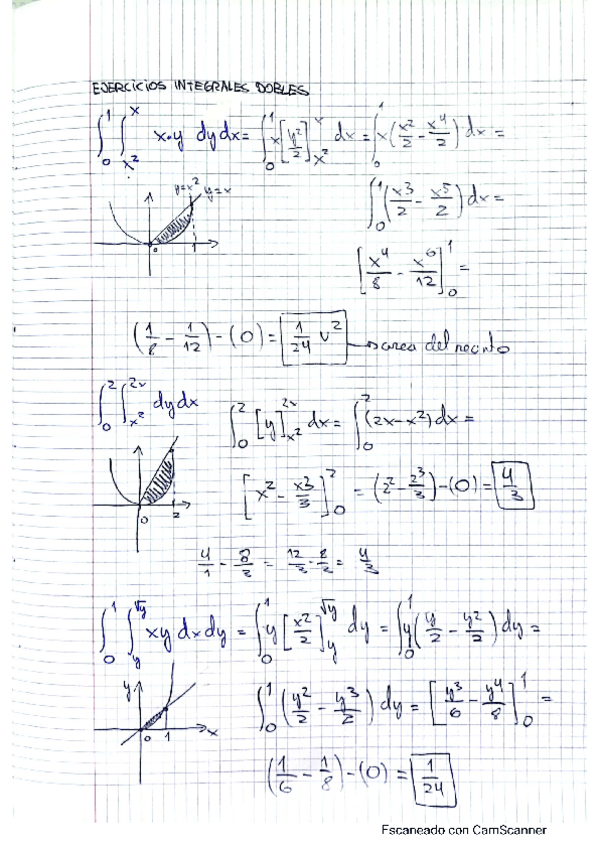 EJERCICIOS INTEGRALES DOBLES
∫₀¹ ∫_{x²}^{x} x·y dy dx = ∫₀¹ x[y²/2]_{x²}^{x} dx = ∫₀¹ x(x²/2 - x⁴/2) dx =
y=x² y=x
0 1
∫₀¹ (x³/2 - x⁵/2) dx =
[x⁴/8 - x⁶/12]₀¹ =
(1/8 - 1/12) - (0) = 1/24 u² → area del recinto
∫₀² ∫_{x²}^{2x} dy dx ∫₀² [y]_{x²}^{2x} dx = ∫₀² (2x - x²) dx =
0 2
[x² - x³/3]₀² = (2² - 2³/3) - (0) = 4/3
4/1 - 8/3 = 12/3 - 8/3 = 4/3
∫₀¹ ∫_{y}^{√y} xy dx dy = ∫₀¹ y[x²/2]_{y}^{√y} dy = ∫₀¹ y(y/2 - y²/2) dy =
y x 0 1
∫₀¹ (y²/2 - y³/2) dy = [y³/6 - y⁴/8]₀¹ =
(1/6 - 1/8) - (0) = 1/24
Escaneado con CamScanner